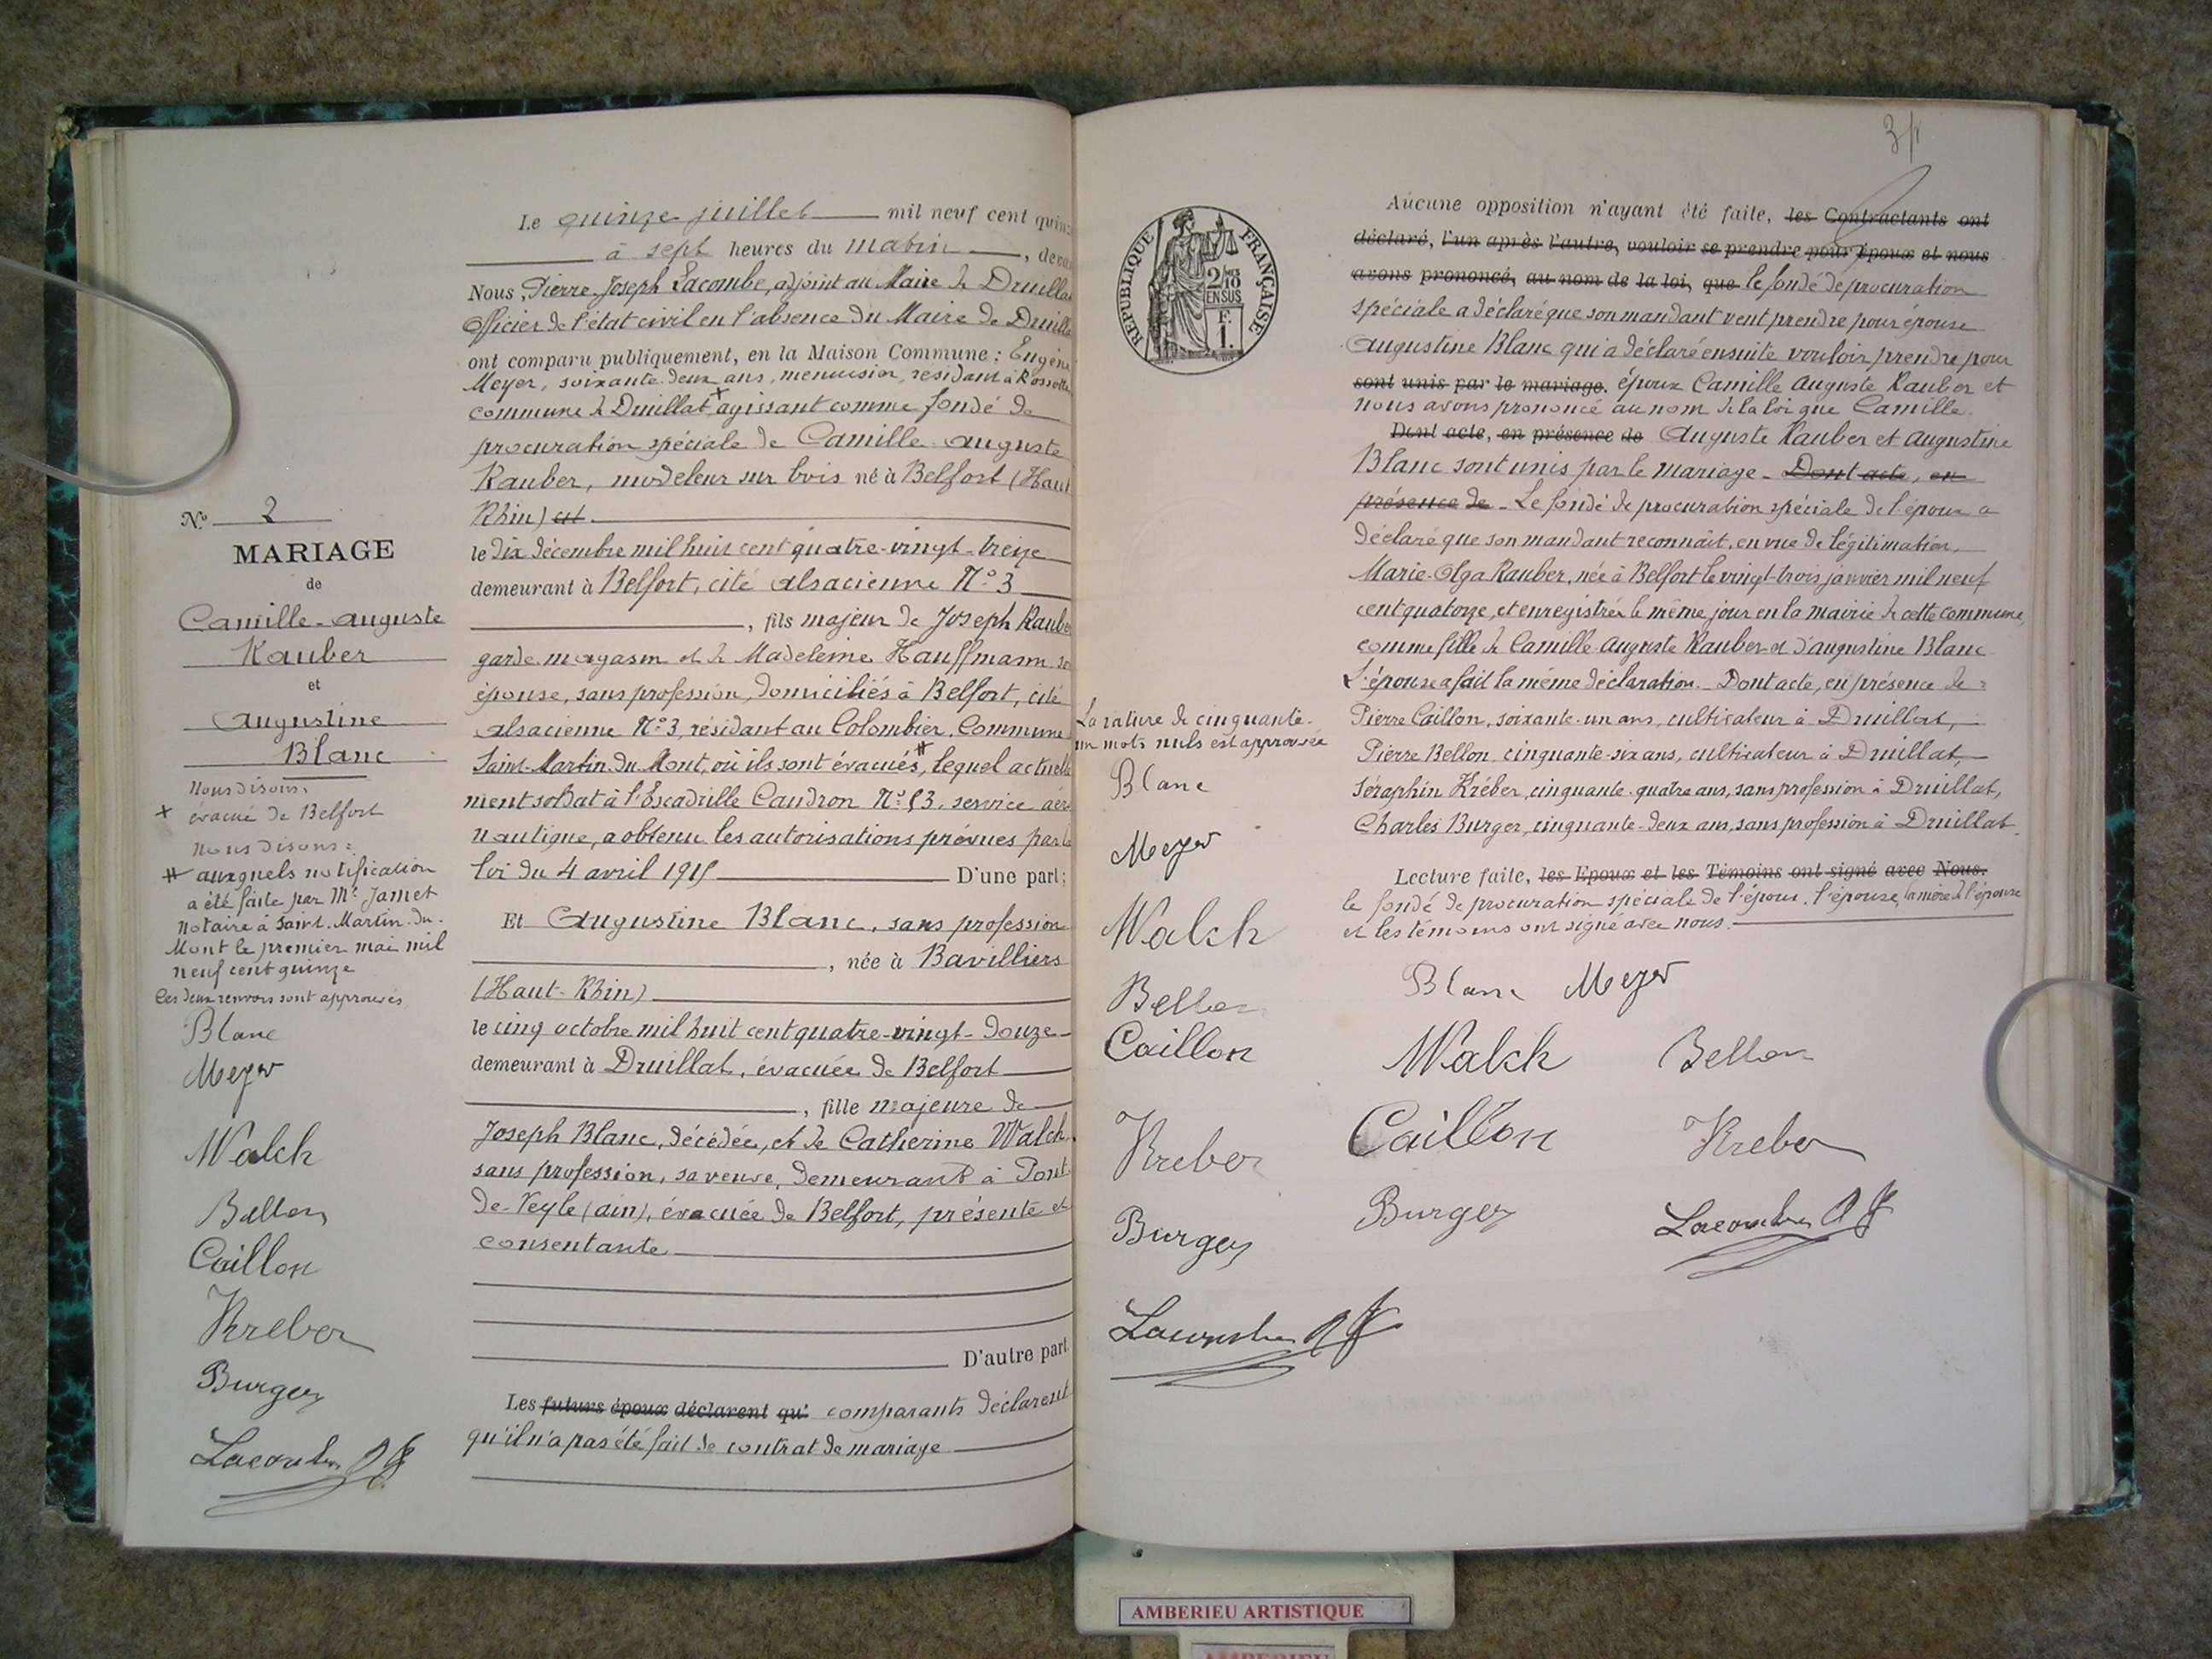 N.° 2
MARIAGE
de
Camille-Auguste
Rauber
et
Augustine
Blanc
Nous disons:
+ évacué de Belfort
Nous disons:
# auxquels notification
a été faite par Me Jamet
notaire à Saint-Martin-du-
Mont le premier mai mil
neuf cent quinze
Ces deux renvois sont approuvés
Blanc
Meyer
Walch
Bellon
Caillon
Kreber
Burger
Lacombe
Le quinze juillet mil neuf cent quin
à sept heures du matin, deva
Nous, Pierre Joseph Lacombe, adjoint au Maire de Druillat
Officier de l'état civil en l'absence du Maire de Druilla
ont comparu publiquement, en la Maison Commune : Eugène
Meyer, soixante-deux ans, menuisier, résidant à Rossette
commune de Druillat + agissant comme fondé de
procuration spéciale de Camille Auguste
Rauber, modeleur sur bois né à Belfort (Haut
Rhin) est
le dix décembre mil huit cent quatre-vingt-treize
demeurant à Belfort, cité alsacienne N° 3
, fils majeur de Joseph Raube
garde-magasin et de Madeleine Hauffmann so
épouse, sans profession, domiciliés à Belfort, cité
alsacienne N° 3, résidant au Colombier, Commune
Saint-Martin-du-Mont, où ils sont évacués #, lequel actuelle
ment soldat à l'Escadrille Caudron N° 53, service aéro
nautique, a obtenu les autorisations prévues par la
loi du 4 avril 1915 D'une part;
Et Augustine Blanc, sans profession
, née à Bavilliers
(Haut-Rhin)
le cinq octobre mil huit cent quatre-vingt-douze
demeurant à Druillat, évacuée de Belfort
, fille majeure de
Joseph Blanc, décédée, et de Catherine Walch,
sans profession, sa veuve, demeurant à Pont-
de-Veyle (ain), évacuée de Belfort, présente et
consentante
D'autre part.
Les futurs époux déclarent qu' comparants déclarent
qu'il n'a pas été fait de contrat de mariage
RÉPUBLIQUE FRANÇAISE
2/10
EN SUS
F.
1.
La rature de cinquante-
un mots nuls est approuvée
Blanc
Meyer
Walch
Bellon
Caillon
Kreber
Burger
Lacombe
Aucune opposition n'ayant été faite, les Contractants ont
déclaré, l'un après l'autre, vouloir se prendre pour époux et nous
avons prononcé, au nom de la loi, que le fondé de procuration
spéciale a déclaré que son mandant veut prendre pour épouse
Augustine Blanc qui a déclaré ensuite vouloir prendre pour
sont unis par le mariage. époux Camille Auguste Rauber et
nous avons prononcé au nom de la loi que Camille
Dont acte, en présence de Auguste Rauber et Augustine
Blanc sont unis par le mariage - Dont acte, en
présence de - Le fondé de procuration spéciale de l'époux a
déclaré que son mandant reconnaît, en vue de légitimation,
Marie-Olga Rauber, née à Belfort le vingt-trois janvier mil neuf
cent quatorze, et enregistrée le même jour en la mairie de cette commune,
comme fille de Camille Auguste Rauber et d'Augustine Blanc
L'épouse a fait la même déclaration. - Dont acte, en présence de:
Pierre Caillon, soixante-un ans, cultivateur à Druillat,
Pierre Bellon cinquante-six ans, cultivateur à Druillat,
Séraphin Kréber, cinquante-quatre ans, sans profession à Druillat,
Charles Burger, cinquante-deux ans, sans profession à Druillat
Lecture faite, les Epoux et les Témoins ont signé avec Nous.
le fondé de procuration spéciale de l'époux, l'épouse, la mère de l'épouse
et les témoins ont signé avec nous.
Blanc Meyer
Walch Bellon
Caillon Kreber
Burger Lacombe
AMBERIEU ARTISTIQUE
AMBERIEU